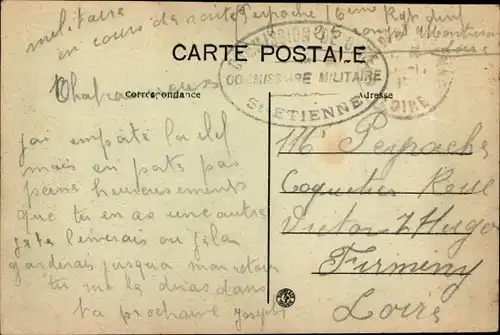 militaire
en cours de route Peyrache 16eme Rgt d'inf
Montbrison
Loire
CARTE POSTALE
COMMISSION DE GARE
COMMISSAIRE MILITAIRE
ST ETIENNE
LOIRE
Correspondance
Adresse
jai emporté la clef
mais en fais pas
peine heureusement
que tu en as une autre
je te l'enverais ou je la
garderais jusqua mon retour
tu me le diras dans
ta prochaine Joseph
Mr Peyrache
Coquetier Rue
Victor Hugo
Firminy
Loire